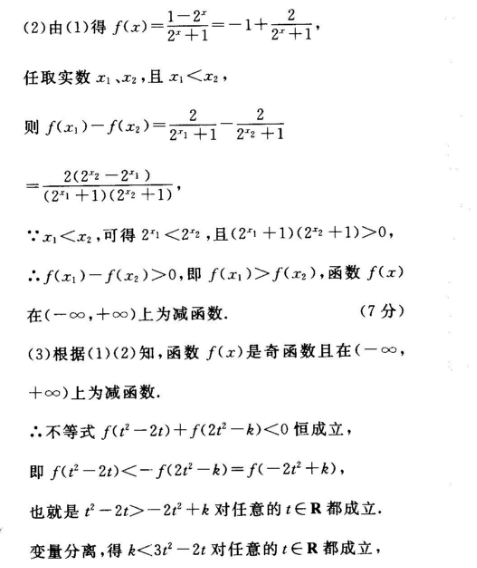 (2)由(1)得 f(x)=\frac{1-2^x}{2^x+1}=-1+\frac{2}{2^x+1},
任取实数 x₁、x₂,且 x₁<x₂,
则 f(x₁)-f(x₂)=\frac{2}{2^{x₁}+1}-\frac{2}{2^{x₂}+1}
=\frac{2(2^{x₂}-2^{x₁})}{(2^{x₁}+1)(2^{x₂}+1)},
∵x₁<x₂,可得 2^{x₁}<2^{x₂},且(2^{x₁}+1)(2^{x₂}+1)>0,
∴f(x₁)-f(x₂)>0,即 f(x₁)>f(x₂),函数 f(x)
在(-∞,+∞)上为减函数. (7 分)
(3)根据(1)(2)知,函数 f(x)是奇函数且在(-∞,
+∞)上为减函数.
∴不等式 f(t²-2t)+f(2t²-k)<0 恒成立,
即 f(t²-2t)<-f(2t²-k)=f(-2t²+k),
也就是 t²-2t>-2t²+k 对任意的 t∈R 都成立.
变量分离,得 k<3t²-2t 对任意的 t∈R 都成立,